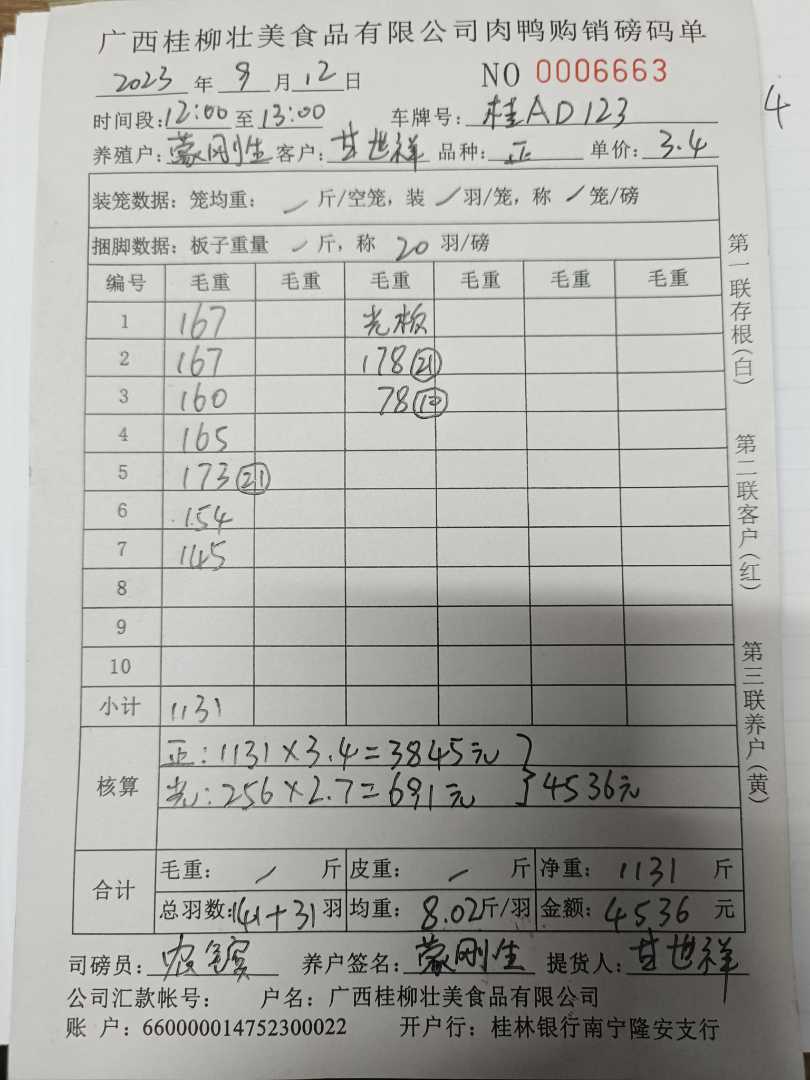 广西桂柳壮美食品有限公司肉鸭购销磅码单
2023 年 9 月 12 日 NO 0006663
4
时间段:12:00 至 13:00 车牌号: 桂AD123
养殖户: 蒙刚生 客户: 甘世祥 品种: 正 单价: 3.4
装笼数据: 笼均重: / 斤/空笼, 装 / 羽/笼, 称 / 笼/磅
捆脚数据: 板子重量 / 斤, 称 20 羽/磅
编号 毛重 毛重 毛重 毛重 毛重 毛重
1 167 光板
2 167 178 (21)
3 160 78
4 165
5 173 (21)
6 154
7 145
8
9
10
小计 1131
核算
正: 1131×3.4=3845元
光: 256×2.7=691元 } 4536元
合计
毛重: / 斤 皮重: / 斤 净重: 1131 斤
总羽数: 141+31 羽 均重: 8.02 斤/羽 金额: 4536 元
司磅员: 养户签名: 蒙刚生 提货人: 甘世祥
公司汇款帐号: 户名: 广西桂柳壮美食品有限公司
账 户: 660000014752300022 开户行: 桂林银行南宁隆安支行
第一联存根(白)
第二联客户(红)
第三联养户(黄)